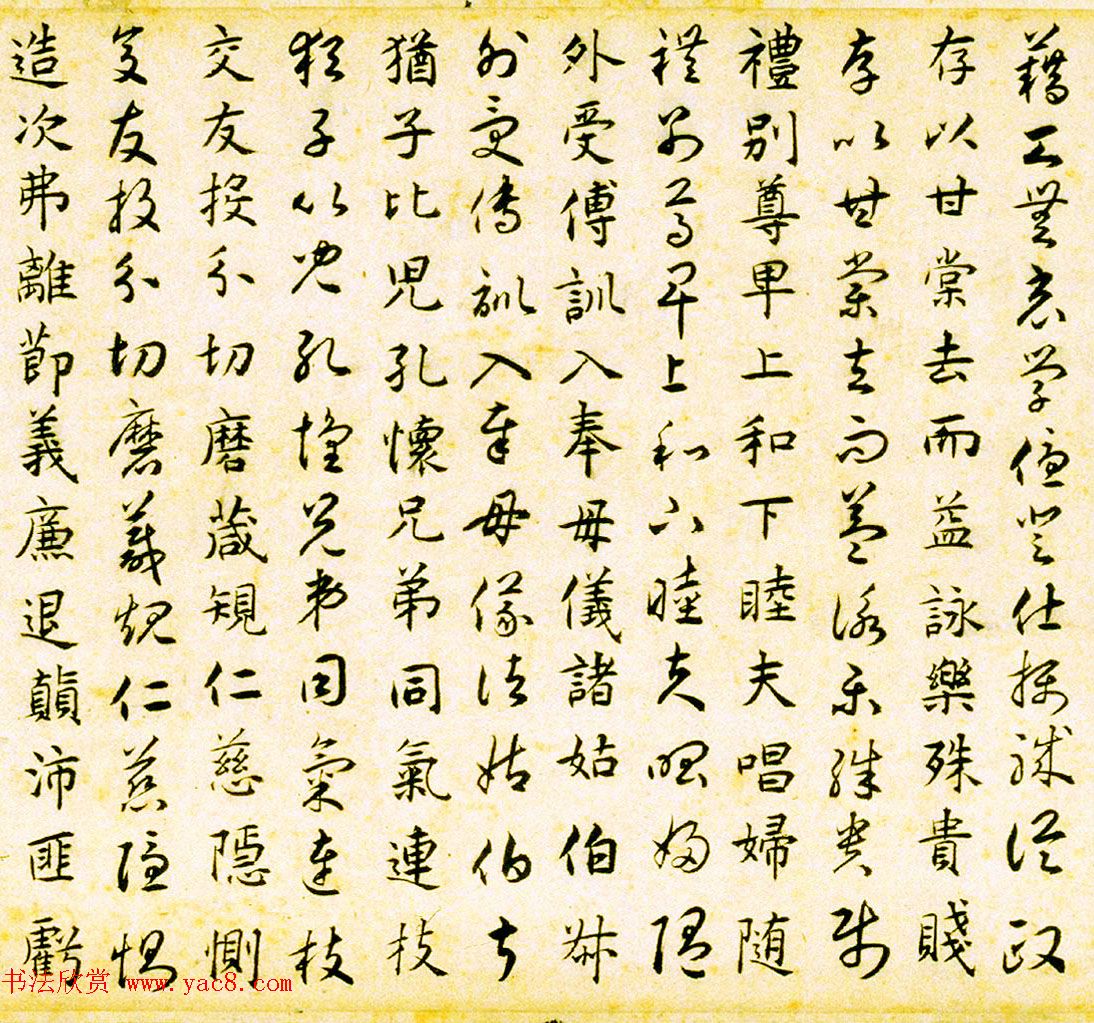 藉甚無竟學優登仕攝職從政
存以甘棠去而益詠樂殊貴賤
存以甘棠去而益詠樂殊貴賤
禮別尊卑上和下睦夫唱婦随
禮別尊卑上和下睦夫唱婦随
外受傅訓入奉母儀諸姑伯叔
外受傅訓入奉母儀諸姑伯叔
猶子比児孔懷兄弟同氣連枝
猶子比児孔懷兄弟同氣連枝
交友投分切磨箴規仁慈隠惻
交友投分切磨箴規仁慈隠惻
造次弗離節義廉退顛沛匪虧
书法欣赏 www.yac8.com